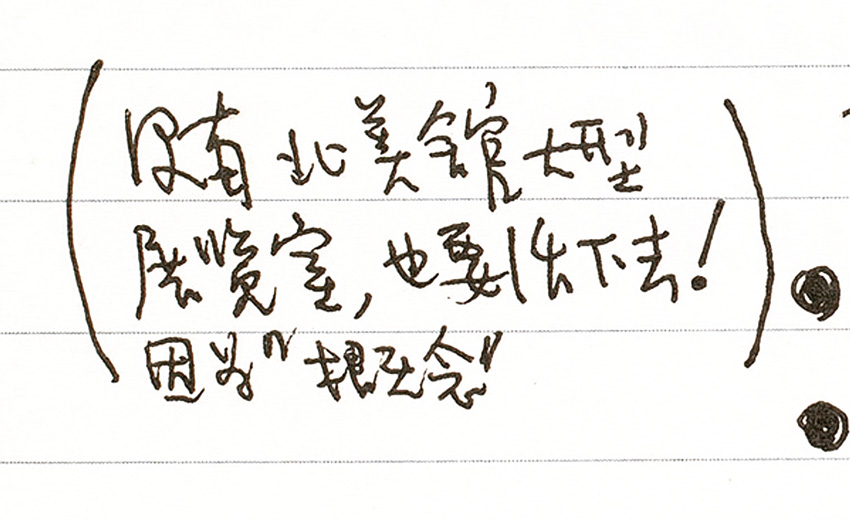 (沒有北美館大型
展覽室,也要做下去!
因為"概念")